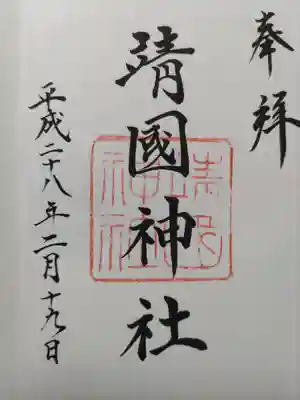 奉拝
靖國神社
平成二十八年二月十九日
靖國神社